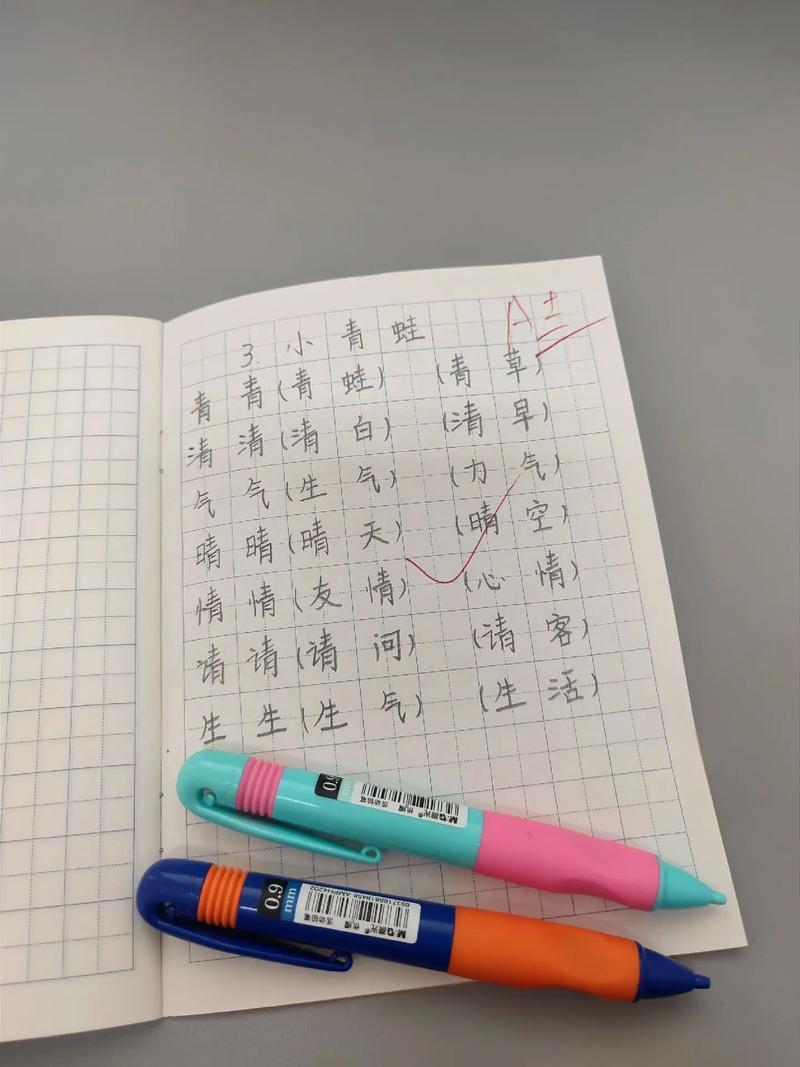 A±
3. 小青蛙
青 青(青蛙) (青草)
清 清(清白) (清早)
气 气(生气) (力气)
晴 晴(晴天) (晴空)
情 情(友情) (心情)
请 请(请问) (请客)
生 生(生气) (生活)
0.9
M&G晨光® 优握
活动铅笔
0.9 mm
M&G晨光® 优握
活动铅笔
AMPH4202